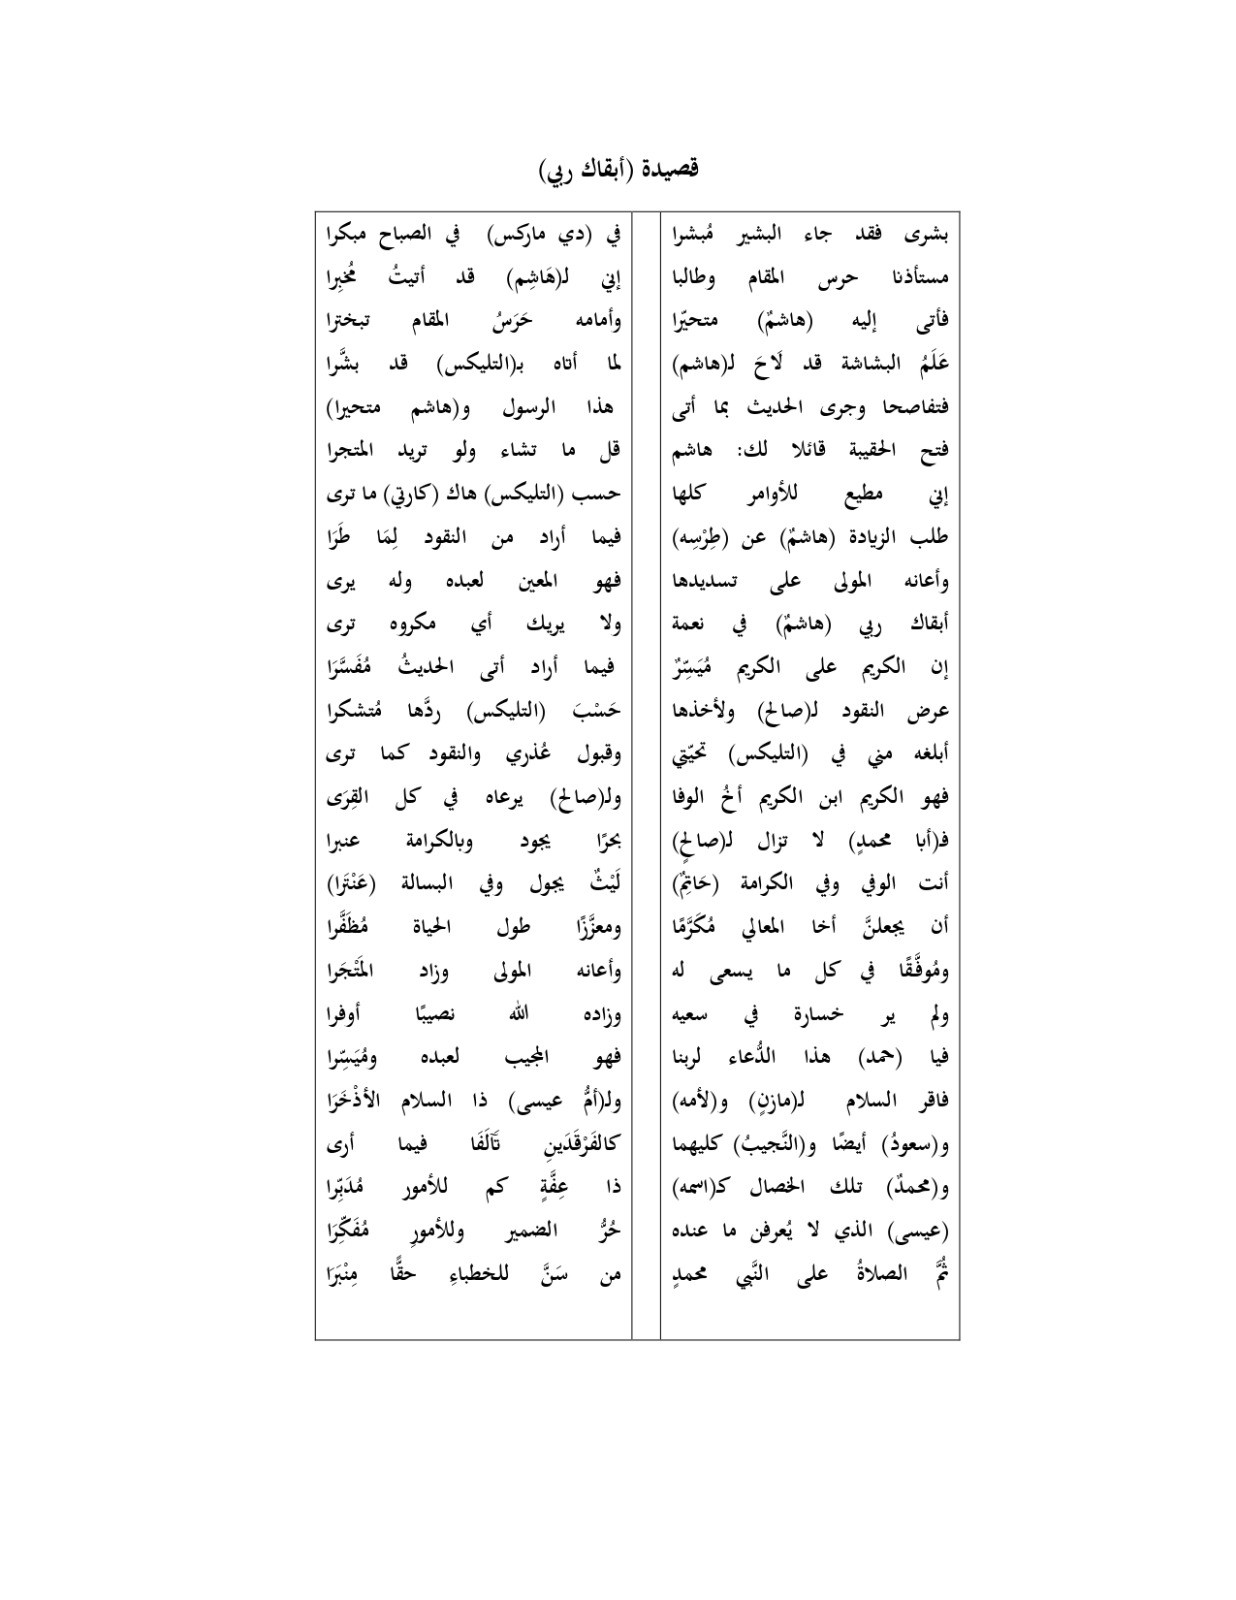 قصيدة (أبقاك ربي)
بشرى فقد جاء البشير مُبشرا في (دي ماركس) في الصباح مبكرا
مستأذنا حرس المقام وطالبا إني لـ(هَاشِم) قد أتيتُ مُخبِرا
فأتى إليه (هاشمٌ) متحيّرا وأمامه حَرَسُ المقام تبخترا
عَلَمُ البشاشة قد لَاحَ لـ(هاشم) لما أتاه بـ(التليكس) قد بشَّرا
فتفاصحا وجرى الحديث بما أتى هذا الرسول و(هاشم متحيرا)
فتح الحقيبة قائلا لك: هاشم قل ما تشاء ولو تريد المتجرا
إني مطيع للأوامر كلها حسب (التليكس) هاك (كارتي) ما ترى
طلب الزيادة (هاشمٌ) عن (طِرْسِه) فيما أراد من النقود لِمَا طَرَا
وأعانه المولى على تسديدها فهو المعين لعبده وله يرى
أبقاك ربي (هاشمٌ) في نعمة ولا يريك أي مكروه ترى
إن الكريم على الكريم مُيَسِّرٌ فيما أراد أتى الحديثُ مُفَسَّرَا
عرض النقود لـ(صالح) ولأخذها حَسْبَ (التليكس) ردَّها مُتشكرا
أبلغه مني في (التليكس) تحيّتي وقبول عُذري والنقود كما ترى
فهو الكريم ابن الكريم أخُ الوفا ولـ(صالح) يرعاه في كل القِرَى
فـ(أبا محمدٍ) لا تزال لـ(صالحٍ) بحرًا يجود وبالكرامة عنبرا
أنت الوفي وفي الكرامة (حَاتِمٌ) لَيْثٌ يجول وفي البسالة (عَنْتَرَا)
أن يجعلنَّ أخا المعالي مُكَرَّمًا ومعزَّزًا طول الحياة مُظَفَّرا
ومُوفَّقًا في كل ما يسعى له وأعانه المولى وزاد المَتْجَرا
ولم ير خسارة في سعيه وزاده الله نصيبًا أوفرا
فيا (حمد) هذا الدُّعاء لربنا فهو المجيب لعبده ومُيَسِّرا
فاقر السلام لـ(مازنٍ) و(لأمه) ولـ(أمُّ عيسى) ذا السلام الأذْخَرَا
و(سعودُ) أيضًا و(النَّجيبُ) كليهما كالفَرْقَدَينِ تَآلَفَا فيما أرى
و(محمدٌ) تلك الخصال كـ(اسمه) ذا عِفَّةٍ كم للأمور مُدَبِّرا
(عيسى) الذي لا يُعرفن ما عنده حُرُّ الضمير وللأمورِ مُفَكِّرَا
ثُمَّ الصلاةُ على النَّبي محمدٍ من سَنَّ للخطباءِ حقًّا مِنْبَرَا